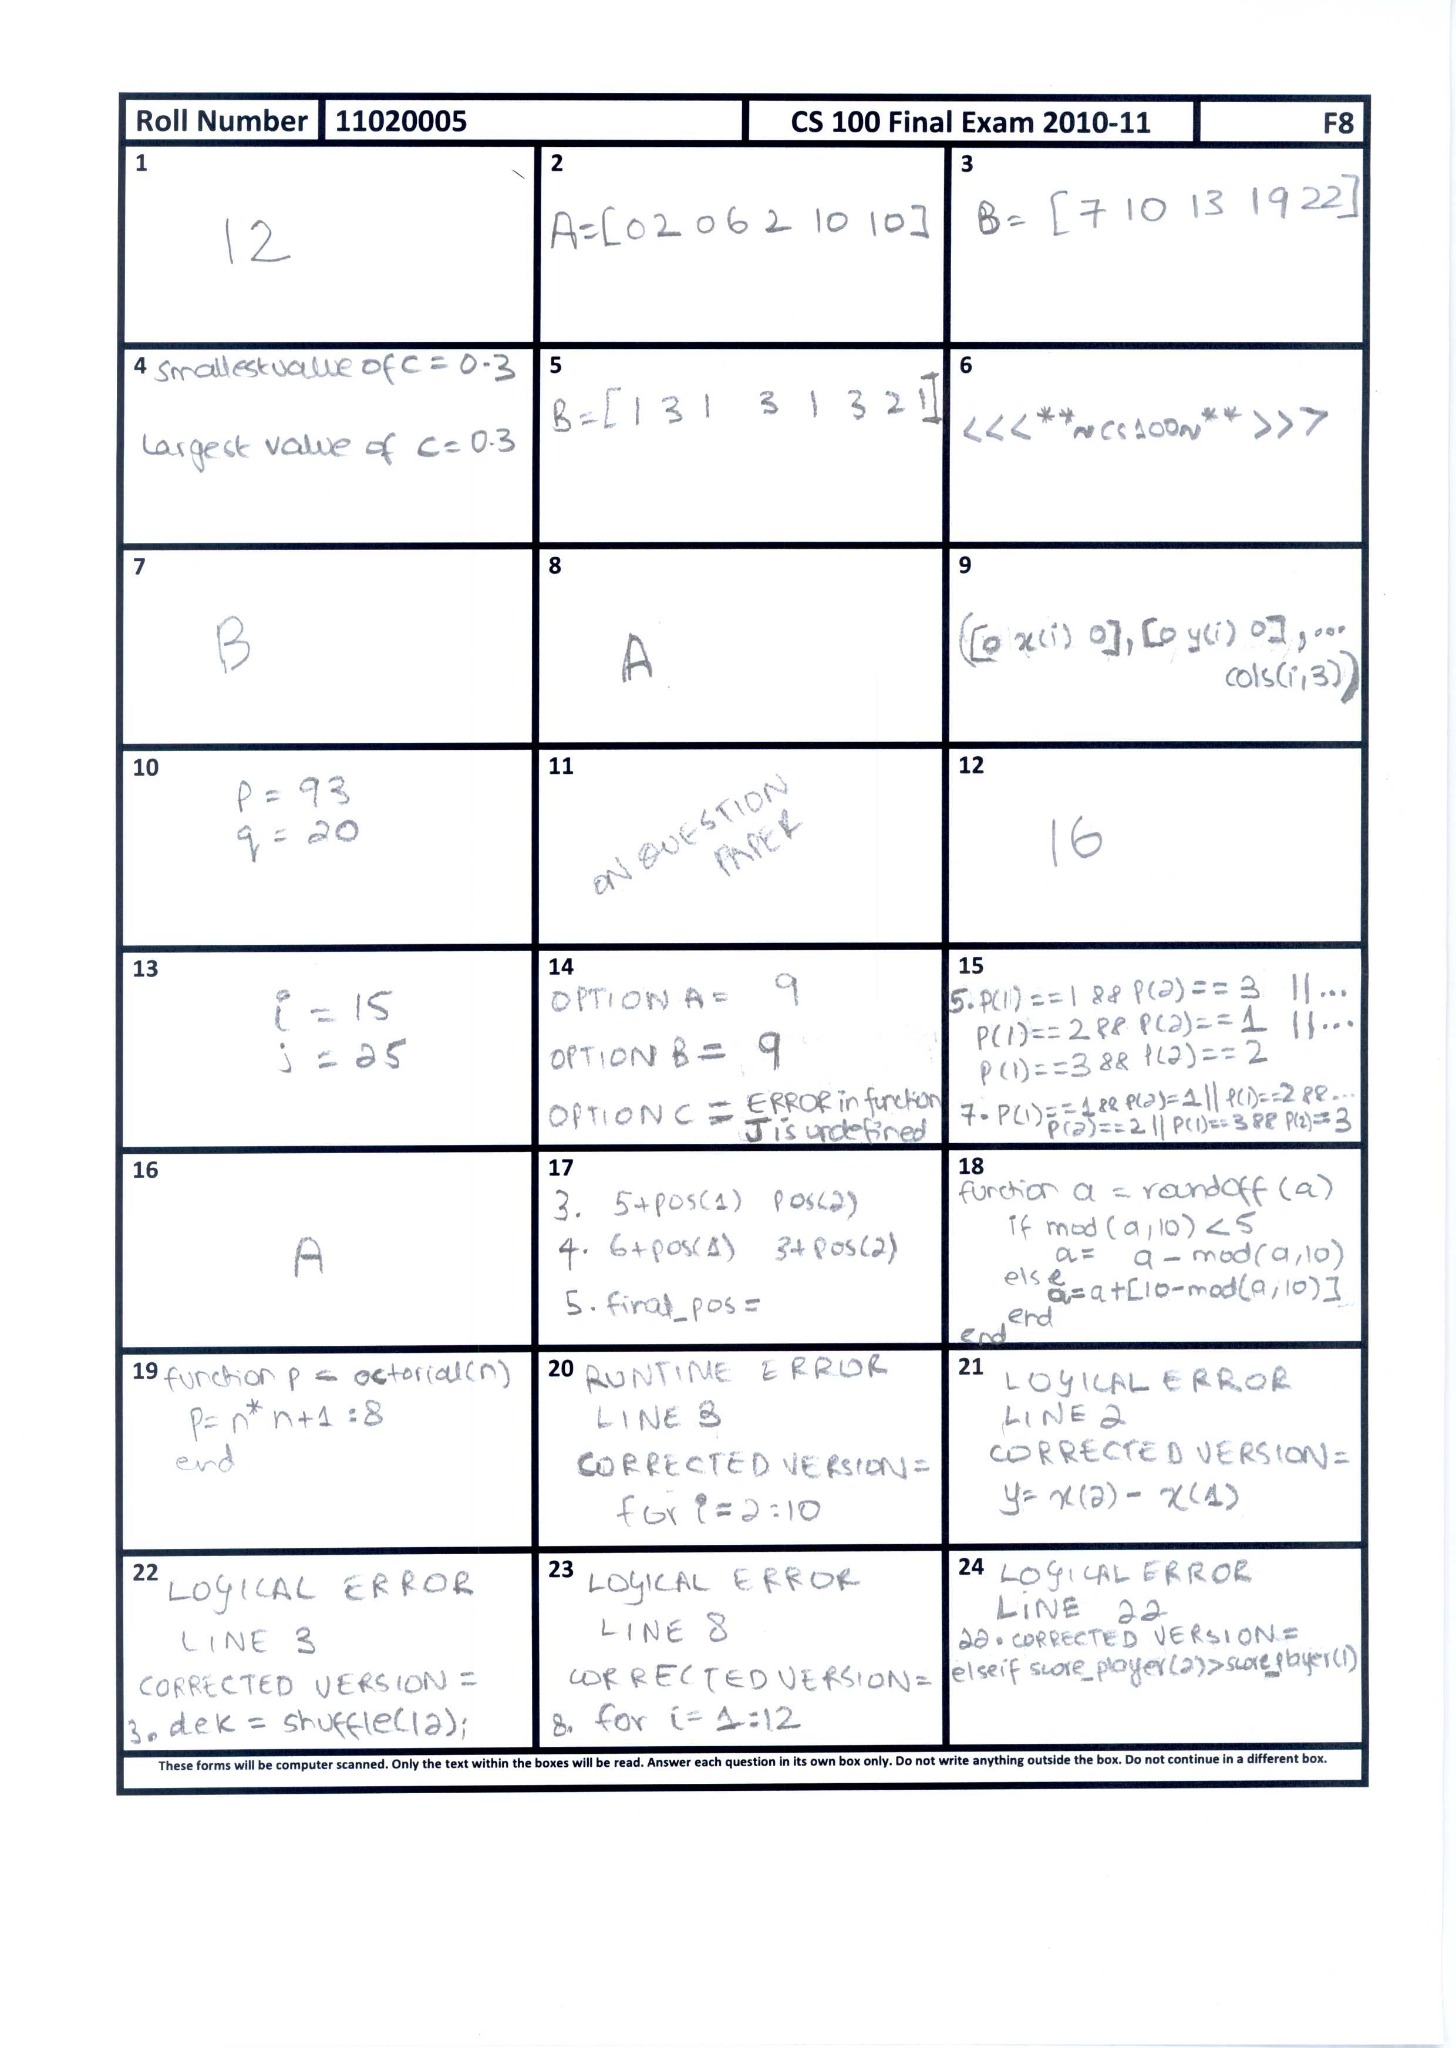 Roll Number 11020005 CS 100 Final Exam 2010-11 F8
1
12
2
A=[0 2 0 6 2 10 10]
3
B= [7 10 13 19 22]
4 smallest value of C = 0.3
Largest value of C = 0.3
5
B=[1 3 1 3 1 3 2 1]
6
<<<**~CS100~**>>>
7
B
8
A
9
([0 x(i) 0], [0 y(i) 0], ...
cols(i,3))
10
P = 93
q = 20
11
ON QUESTION
PAPER
12
16
13
i = 15
j = 25
14
OPTION A = 9
OPTION B = 9
OPTION C = ERROR in function
J is undefined
15
5. P(1)==1 && P(2)==3 ||...
P(1)==2 && P(2)==1 ||...
P(1)==3 && P(2)==2
7. P(1)==1 && P(2)=1 || P(1)==2 &&...
P(2)==2 || P(1)==3 && P(2)==3
16
A
17
3. 5+pos(1) pos(2)
4. 6+pos(1) 3+pos(2)
5. final_pos =
18
function a = roundoff (a)
if mod (a,10) < 5
a= a - mod(a,10)
else
a=a+[10-mod(a,10)]
end
end
19 function p = octorial(n)
p= n* n+1 :8
end
20 RUNTIME ERROR
LINE 3
CORRECTED VERSION =
for i=2:10
21 LOGICAL ERROR
LINE 2
CORRECTED VERSION=
y= x(2) - x(1)
22 LOGICAL ERROR
LINE 3
CORRECTED VERSION =
3. dek = shuffle(12);
23 LOGICAL ERROR
LINE 8
CORRECTED VERSION=
8. for i= 1:12
24 LOGICAL ERROR
LINE 22
22. CORRECTED VERSION=
elseif score_player(2)>score_player(1)
These forms will be computer scanned. Only the text within the boxes will be read. Answer each question in its own box only. Do not write anything outside the box. Do not continue in a different box.